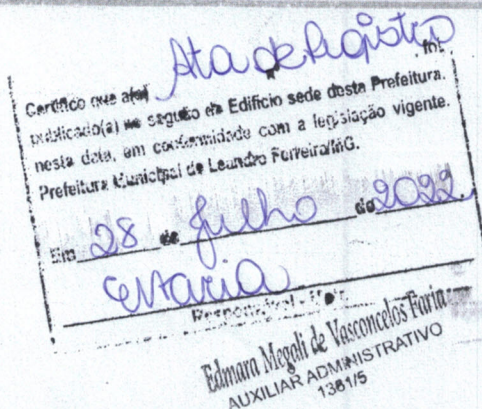 Certifico que a(o) Ata de Registro foi
publicado(a) no saguão da Edifício sede desta Prefeitura.
nesta data, em conformidade com a legislação vigente.
Prefeitura Municipal de Leandro Ferreira/MG.
Em 28 de Julho de 2022.
Responsável
Edmara Megali de Vasconcelos Faria
AUXILIAR ADMINISTRATIVO
1381/5